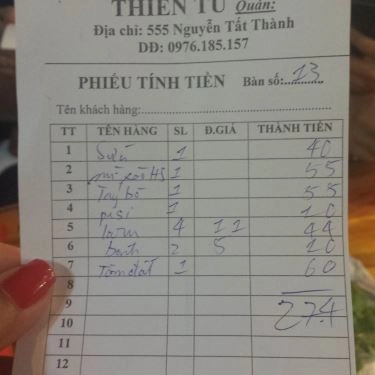 THIÊN TÚ Quán:
Địa chỉ: 555 Nguyễn Tất Thành
DĐ: 0976.185.157
PHIẾU TÍNH TIỀN Bàn số: 13
Tên khách hàng:
TT TÊN HÀNG SL Đ.GIÁ THÀNH TIỀN
1 Sứa 1 40
2 mì xào HS 1 55
3 1 55
4 pepsi 1 10
5 4 11 44
6 bánh 2 5 10
7 1 60
8
9 274
10
11
12